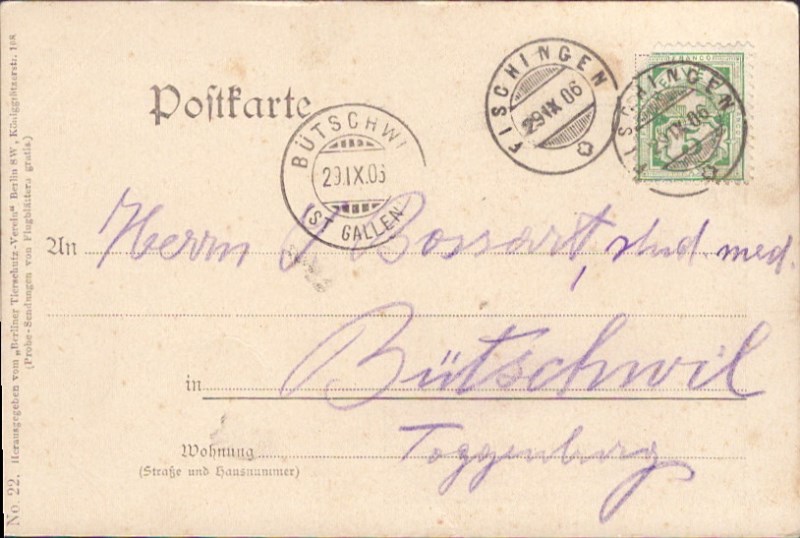 Postkarte
FISCHINGEN
29 IX 06
FRANCO
FISCHINGEN
IX 06
BÜTSCHWI
29.IX.06
(ST GALLEN)
An Herrn J. Bossart, stud. med.
in Bütschwil
Wohnung Toggenburg
(Straße und Hausnummer)
No. 22. Herausgegeben vom „Berliner Tierschutz-Verein“ Berlin SW, Königgrätzerstr. 108
(Probe-Sendungen von Flugblättern gratis)